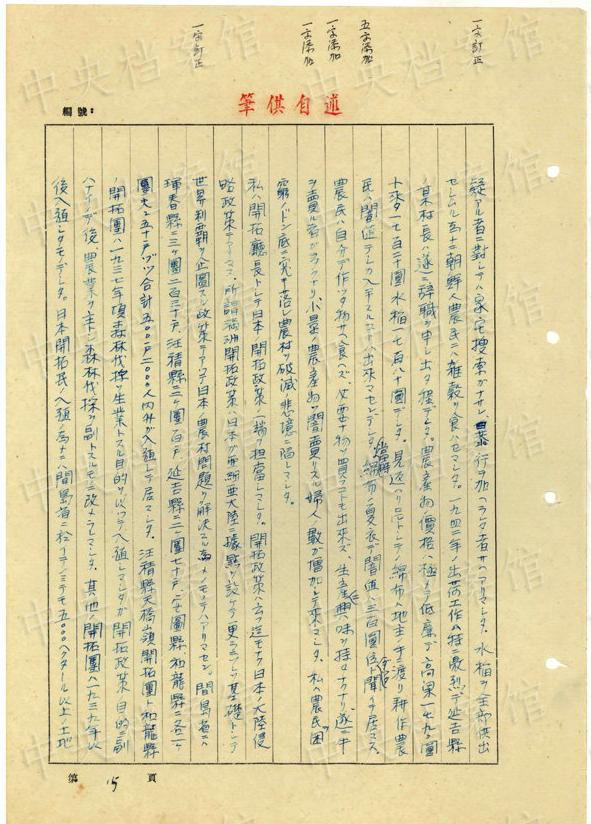 一字訂正
五字添加
一字添加
一字添加
一字訂正
筆供自述
編號:
疑アル者ニ對シテハ家宅搜索ガナサレ、暴行ヲ加ヘラレタ者サヘアリマシタ。水稲ヲ全部供出
セシムル為ニ朝鮮人農民ニハ雑穀ヲ食ハセマシタ。一九四二年ノ出荷工作ハ特ニ最烈デ延吉縣
ノ某村長ハ遂ニ辞職ヲ申シ出タ程デシタ。農産物ノ價格ハ極メテ低廉デ高粱一七九〇圓
水稲一七百八十圓デシタ。見返ハリトシテノ綿布ハ地主ノミニ渡リ耕作農
民ハ闇値デシカ入手スルコトハ出来マセンデシタ。綿布ノ夏衣デ闇値二三百圓位ト聞イテ居マス。
農民ハ自分デ作ツタ物サヘ食ヘズ、必要ナ物ヲ買フコトモ出来ズ、生産ニ興味ヲ持タナクナリ、遂ニ牛
ヲ賣ル者ガ多クナリ、小量ノ農産物ヲ闇賣リスル婦人ノ數ガ増加シテ来マシタ。私ハ農民ヲ困
窮ノドン底ニ突キ落シ農村ヲ破滅ノ悲境ニ陥レマシタ。
私ハ開拓廳長トシテ日本ノ開拓政策ノ一端ヲ担當シマシタ。開拓政策ハ云フ迄モナク日本ノ大陸侵
略政策デアリマス。所謂満洲開拓政策ハ日本ガ亜細亜大陸ニ據點ヲ設ケ、更ラニ之ヲ基礎トシテ
世界制覇ヲ企圖スル政策デアツテ日本ノ農村問題ヲ解決スル為メノモノデハアリマセン。間島省ニハ
琿春縣ニ三ケ團二百三十戸、汪清縣ニ三ケ團百戸、延吉縣ニ二ケ團七十戸、安圖縣、和龍縣ニ各一ケ
團夫々五十戸ヅツ合計五〇〇戸二〇〇〇人内外ガ入植シテ居マシタ。汪清縣天橋嶺開拓團ト和龍縣
ノ開拓團ハ一九三七年頃森林伐採ヲ生業トスル目的ヲ以ツテ入植シマシタガ開拓政策ノ目的ニ副
ハナイノデ後、農業ヲ主トシ森林伐採ヲ副トスルモノニ改メラレマシタ。其他ノ開拓團ハ一九三九年以
後入植シタモノデシタ。日本開拓民ノ入植ノ為メニハ間島省ニ於イテノミデモ五〇〇〇ヘクタール以上ノ土地
第 15 頁